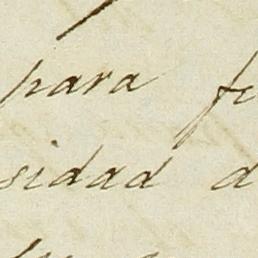 para fu
sidad d